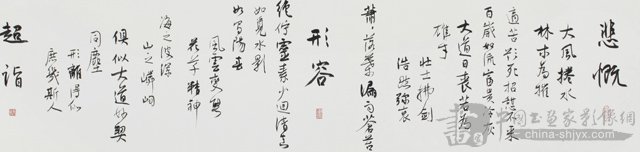 悲慨
大風捲水
林木為摧
適苦欲死招憩不来
百歲如流富貴冷灰
大道日喪若為
雄才
壮士拂劍
浩然彌哀
蕭蕭落葉漏雨蒼苔
形容
絕佇靈素少迴清真
如覓水影
如寫陽春
風雲變態
花草精神
海之波瀾
山之嶙峋
俱似大道妙契
同塵
形離得似
庶幾斯人
超詣
china-shjyx.com